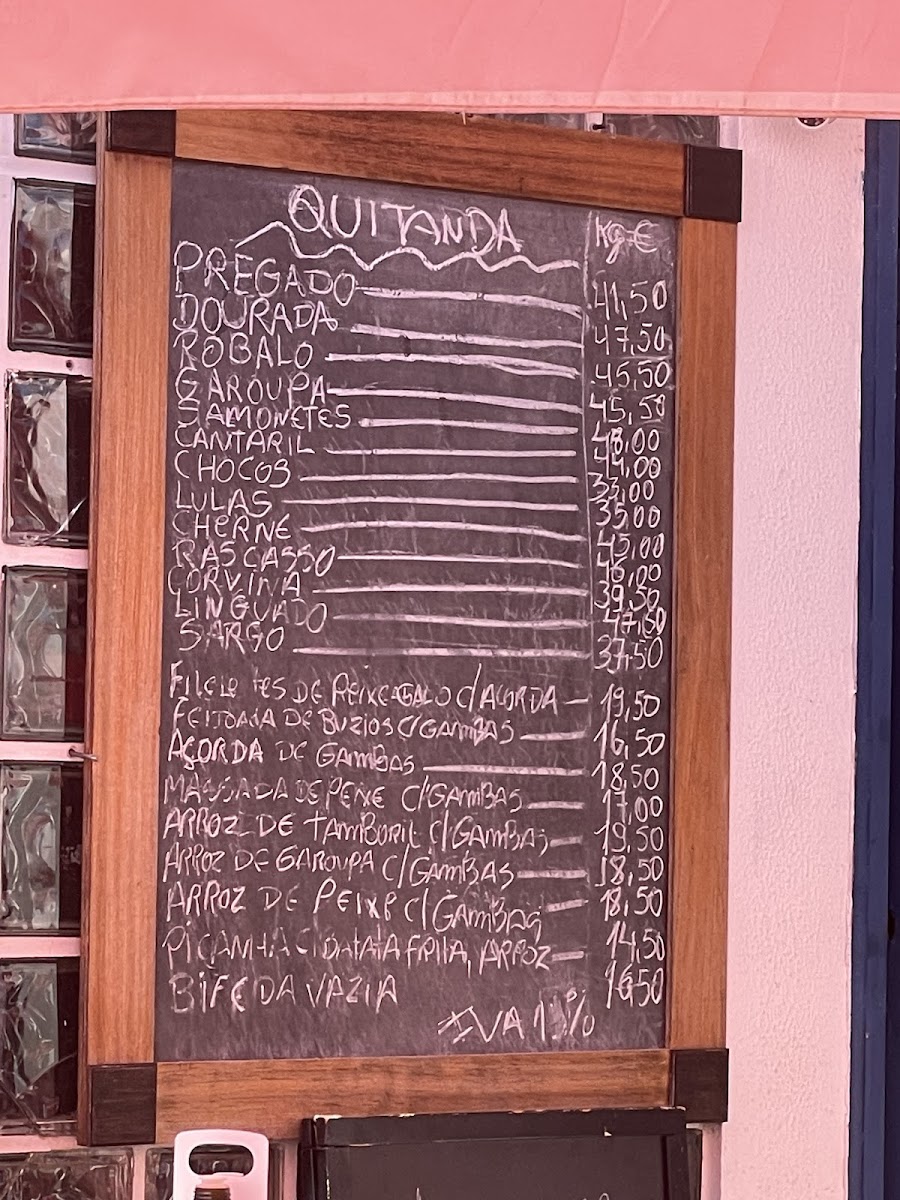 QUITANDA KG €
PREGADO 41,50
DOURADA 47,50
ROBALO 45,50
GAROUPA 45,50
SAMONETES 48,00
CANTARIL 44,00
CHOCOS 33,00
LULAS 35,00
CHERNE 45,00
RASCASSO 46,00
CORVINA 39,50
LINGUADO 47,50
SARGO 37,50
DE PEIXE GALO C/AÇORDA 19,50
FEIJOADA DE BUZIOS C/GAMBAS 16,50
AÇORDA DE GAMBAS 18,50
MASSADA DE PEIXE C/GAMBAS 17,00
ARROZ DE TAMBORIL C/GAMBAS 19,50
ARROZ DE GAROUPA C/GAMBAS 18,50
ARROZ DE PEIXE C/GAMBAS 18,50
PICANHA C/BATATA FRITA, ARROZ 14,50
BIFE DA VAZIA 16,50
IVA 13%